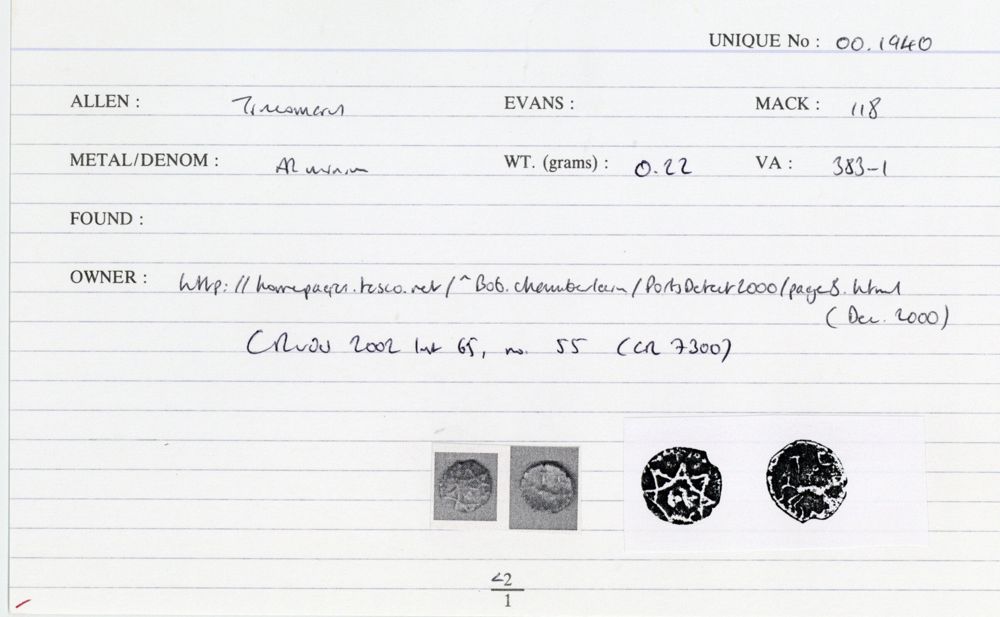 UNIQUE No : 00.1940
ALLEN : Tincomarus EVANS : MACK : 118
METAL/DENOM : AR minim WT. (grams) : 0.22 VA : 383-1
FOUND :
OWNER : http://homepages.tesco.net/~Bob.chamberlain/PortsDetect2000/page8.html
(Dec. 2000)
CRUDD 2002 list 65, no. 55 (CR 7300)
<2
1